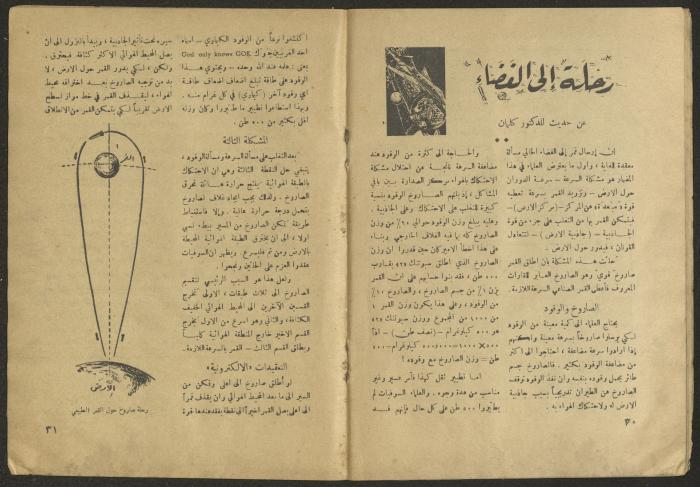 رحلة إلى الفضاء
عن حديث للدكتور كليان
ان إرسال قمر إلى الفضاء الخالي مسألة
معقدة للغاية ، واول ما يعترض العلماء في هذا
المضمار هو مشكلة السرعة – سرعة الدوران
حول الارض – وتزويد القمر بسرعة تعطيه
قوة « مبعدة » عن المركز – (مركز الارض) –
فيتمكن القمر بها من التغلب على جزء من قوة
الجاذبية – (جاذبية الارض) – لتتعادل
القوتان ، فيدور حول الارض .
حلت هذه المشكلة بان اطلق القمر
صاروخ قوي وهو الصاروخ العابر للقارات
المعروف فأعطى القمر الصناعي السرعة اللازمة .
الصاروخ والوقود
يحتاج العلماء إلى كمية معينة من الوقود
لكي يرسلوا صاروخاً بسرعة معينة ولكنهم
إذا ارادوا سرعة مضاعفة ، احتاجوا إلى اكثر
من مضاعفة الوقود بكثير . فالصاروخ جسم
طائر يحمل وقوده بنفسه وان نفذ الوقود توقف
الصاروخ عن الطيران تدريجياً بسبب جاذبية
الارض له ولاحتكاك الهواء به .
٣٠
والحاجة الى كثرة من الوقود عند
مضاعفة السرعة ناتجة عن احتلال مشكلة
الاحتكاك بالهواء مركز الصدارة بين باقي
المشاكل ، إذ يلتهم الصاروخ الوقود بنسبة
كبيرة للتغلب على الاحتكاك وعلى الجاذبية .
وعليه يبلغ وزن الوقود حوالي ٩٠٪ من وزن
الصاروخ كله بما فيه الغلاف الخارجي وبناء
على هذا اخطأ الاميركان حين قدروا ان وزن
الصاروخ الذي اطلق سبوتنك ٥٢٥ يقارب
٥٠٠ طن ، فقد بنوا حسابهم على ان القمر
يزن ١٪ من جسم الصاروخ ، والصاروخ ١٠٪
من الوقود ، وعلى هذا يكون وزن القمر ١
من ١٠٠٠ من المجموع ووزن سبوتنك ٥٢٥
هو ٥٠٠ كيلوغرام – (نصف طن) – اذاً
٥٠٠ × ١٠٠٠ = ٥٠٠٠٠٠ كيلوغرام – ٥٠٠
طن = وزن الصاروخ مع وقوده !
اما تطيير ثقل كهذا فأمر عسير وغير
مناسب من عدة وجوه . والعلماء السوفيات لم
يطيّروا ٥٠٠ طن على كل حال فإنهم قد
اكتشفوا نوعاً من الوقود الكيماوي – اسماه
احد الغربيين جوك God only knows GOK
بمعنى : علمه عند الله وحده – ويحتوي هذا
الوقود على طاقة تبلغ اضعاف اضعاف طاقة
اي وقود آخر (كيماوي) في كل غرام منه .
وبهذا استطاعوا تطيير ما طيّروا وكان وزنه
اقل بكثير من ٥٠٠ طن .
المشكلة الثالثة
بعد التغلب على مسألة السرعة ومسألة الوقود ،
ينبغي حل النقطة الثالثة وهي ان الاحتكاك
بالطبقة الهوائية ينتج حرارة هائلة تحرق
الصاروخ . ولذلك يجب ايجاد غلاف لصاروخ
يتحمل درجة حرارة عالية . وإلا فاستنباط
طريقة تمكن الصاروخ من المسير ببطء نسبي
اولا ، الى ان يخترق الطبقة الهوائية المحيطة
بالارض ومن ثم فليسرع . ويظهر ان السوفيات
عقدوا العزم على الحلين ونجحوا .
ولعل هذا هو السبب الرئيسي لتقسيم
الصاروخ الى ثلاث طبقات ، الاولى تخرج
القسمين الآخرين الى المحيط الهوائي الخفيف
الكثافة ، والثاني وهو اسرع من الاول يخرج
القسم الاخير خارج المنطقة الهوائية كلياً
ويطلق القسم الثالث – القمر بالسرعة اللازمة .
التعقيدات «الالكترونية»
لو أطلق صاروخ الى اعلى وتمكن من
السير الى ما بعد المحيط الهوائي وان يقذف قمراً
الى اعلى يصل القمر اخيراً الى نقطة يفقد عندها قوة
سيره تحت تأثير الجاذبية ، ويبدأ بالنزول الى ان
يصل المحيط الهوائي الاكثر كثافة فيحترق .
ولكن ، لكي يدور القمر حول الارض ، لا
بد من توجيه الصاروخ بعد اختراقه محيط
الهواء ، ليقذف القمر في خط مواز لسطح
الارض تقريباً لكي يتمكن القمر من الانطلاق
القمر
الأرض
رحلة صاروخ حول القمر الطبيعي
٣١